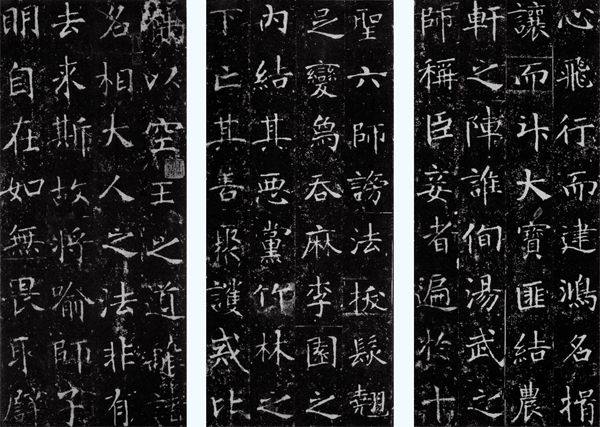 心飛行而建鴻名揖
讓而升大寶匪結農
軒之陣誰徇湯武之
師稱臣妾者遍於十
聖六師謗法拔髮翹
足變爲吞麻李園之
內結其惡黨竹林之
下亡其善援護戒比
以空王之道離諸
名相大人之法非有
去來斯故將喻師子
明自在如無畏取譬